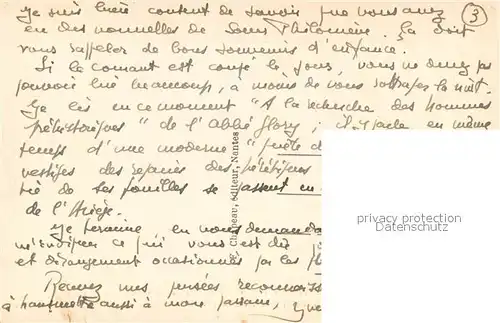 Je suis bien content de savoir que vous avez
eu des nouvelles de Sœur Philomène. Ça doit
vous rappeler de bons souvenirs d'enfance.
Si le courant est coupé le jour, vous ne devez pas
pouvoir lire beaucoup, à moins de vous rattraper la nuit.
Je lis en ce moment "A la recherche des hommes
préhistoriques" de l'Abbé Glory; il parle en même
temps d'une moderne "
vestiges des repaires des
de ses fouilles se passent en
de l'Ariège.
Je termine en vous demandant
m'indiquer ce qui vous est dû
et dérangement occasionnés par les
Recevez mes pensées reconnaiss
à aussi à mon
3
F. Chapeau, éditeur, Nantes
privacy protection
Datenschutz